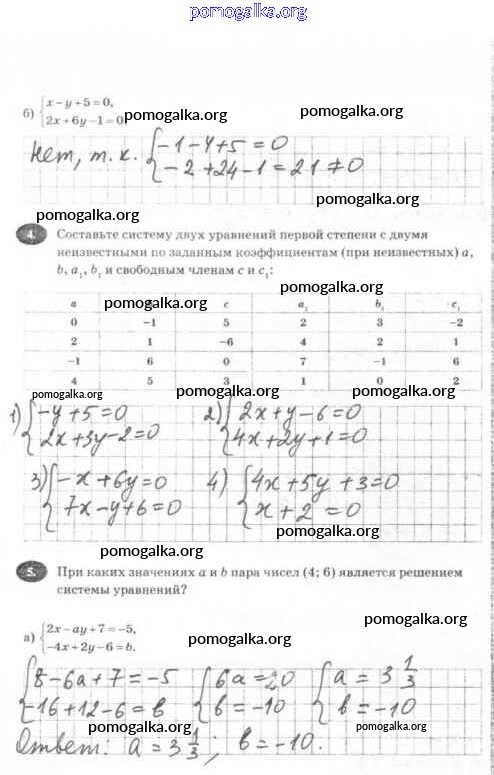 pomogalka.org
б) { x – y + 5 = 0,
2x + 6y – 1 = 0
pomogalka.org pomogalka.org
Нет, т.к. { -1-4+5=0
-2+24-1=21≠0
pomogalka.org
pomogalka.org
4. Составьте систему двух уравнений первой степени с двумя
неизвестными по заданным коэффициентам (при неизвестных) a,
b, a₁, b₁ и свободным членам c и c₁:
pomogalka.org
a c a₁ b₁ c₁
pomogalka.org
0 –1 5 2 3 –2
2 1 –6 4 2 1
–1 6 0 7 –1 6
4 5 3 1 0 2
pomogalka.org pomogalka.org pomogalka.org
1) { -y+5=0 2) { 2x+y-6=0
2x+3y-2=0 4x+2y+1=0
3) { -x+6y=0 4) { 4x+5y+3=0
7x-y+6=0 x+2=0
pomogalka.org
pomogalka.org
5. При каких значениях a и b пара чисел (4; 6) является решением
системы уравнений?
pomogalka.org
а) { 2x – ay + 7 = –5,
–4x + 2y – 6 = b.
pomogalka.org
{ 8-6a+7=-5 { 6a=20 { a=3 1/3
-16+12-6=b b=-10 b=-10
pomogalka.org pomogalka.org
Ответ: a=3 1/3; b=-10.